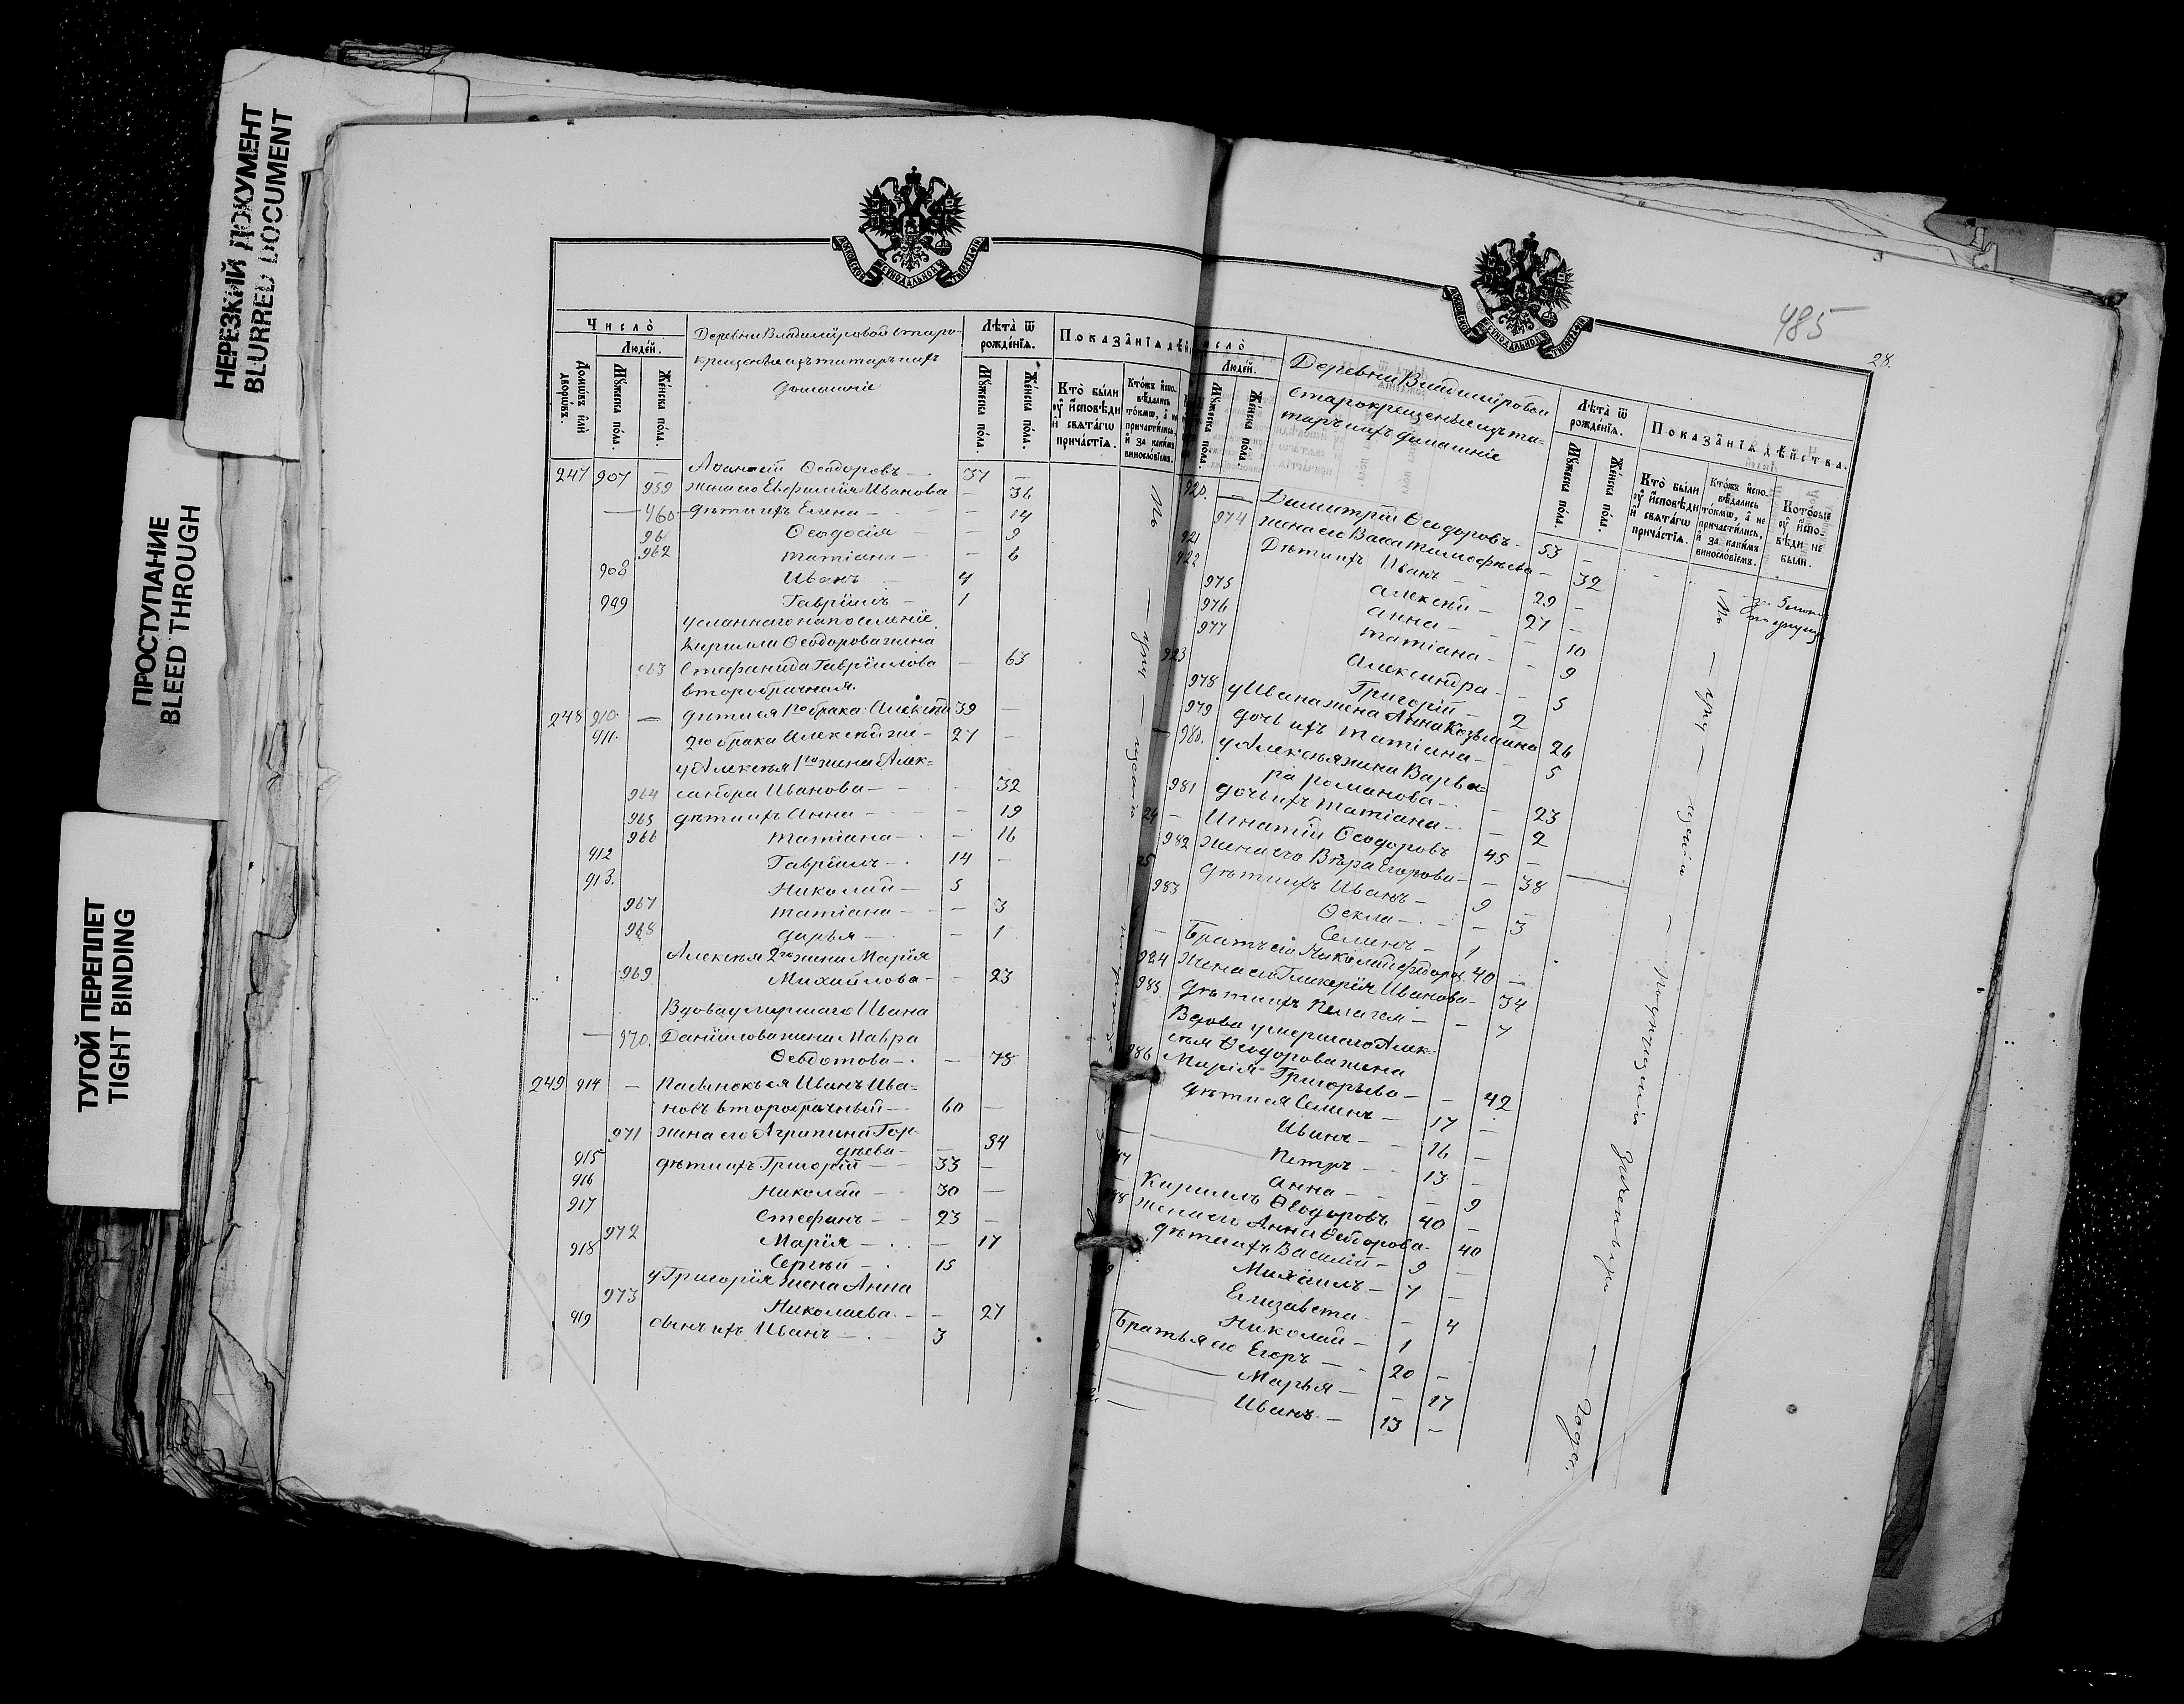 НЕРЕЗКИЙ ДОКУМЕНТ
BLURRED DOCUMENT
ПРОСТУПАНИЕ
BLEED THROUGH
ТУГОЙ ПЕРЕПЛЕТ
TIGHT BINDING
МОСКОВСКОЙ СѴНОДАЛЬНОЙ ТИПОГРАФІИ
Число̀
Людей.
Домѡвъ илѝ дворѡвъ.
Мꙋжеска пола.
Женска пола.
Деревни Владиміровой старо-
крещеные изъ татаръ и ихъ
домашніе
Лѣта̀ ѿ рожденїѧ.
Мꙋжеска пола.
Женска пола.
Показанїѧ дѣй
Кто̀ были оу҆ и҆сповѣди и҆ свѧта́гѡ прича́стїѧ.
Кто́жъ и҆спо-вѣдались то́кмѡ, а҆ не причасти́лись, и҆ за каки́мъ виносло́вїемъ.
247 907 — Ѳеодоровъ — 37 —
959 жена его Евфимія Иванова — 36
960 дѣти ихъ Елена — 14
961 Ѳеодосія — 9
962 Татіана — 6
908 Иванъ 4
909 Гавріилъ — 1
усланнаго на поселеніе
Кирилла Ѳеодорова жена
963 Стефанида Гавріилова — 63
второбрачная.
248 910. — дѣти ея 1го брака: Алексѣй 39 —
911. 2го брака Алексѣй же — 27 —
у Алексѣя 1го жена Алек-
964 сандра Иванова — 32
965 дѣти ихъ Анна — 19
966 Татіана — 16
912 Гавріилъ — 14 —
913. Николай — 5
967 Татіана — 3
968 Дарья — 1
Алексѣя 2го жена Марія
969 Михайлова — 23
Вдова умершаго Ивана
— 970. Даніилова жена Мавра
Ѳедотова — 75
249 914 — Пасынокъ ея Иванъ Ива-
новъ второбрачный — 60 —
971 жена его Агрипина Гор-
дѣева — 34
915 дѣти ихъ Григорій — 33 —
916 Николай — 30 —
917 Стефанъ — 23 —
972 Марія — 17
918 Сергѣй — 15
у Григорія жена Анна
973 Николаева — 27
919 сынъ ихъ Иванъ — 3
485
28.
МОСКОВСКОЙ СѴНОДАЛЬНОЙ ТИПОГРАФІИ
Людей.
Мꙋжеска пола.
Женска пола.
Деревни Владиміровой
старокрещеные изъ та-
таръ и ихъ домашніе
Лѣта̀ ѿ рожденїѧ.
Мꙋжеска пола.
Женска пола.
Показанїѧ дѣйства.
Кто̀ были оу҆ и҆сповѣди и҆ свѧта́гѡ прича́стїѧ.
Кто́жъ и҆спо-вѣдались то́кмѡ, а҆ не причасти́лись, и҆ за каки́мъ виносло́вїемъ.
Которые оу҆ и҆спо-вѣди не были.
920. — Димитрій Ѳеодоровъ — 53 —
974 жена его Васса Тимофѣева — 32
921 Дѣти ихъ Иванъ — 29 —
922 Алексѣй — 27 —
975 Анна — 10
976 Татіана — 9
977 Александра — 5
923 Григорій — 2
978 у Ивана жена Анна Козьмина 26
979 дочь ихъ Татіана — 5
980. у Алексѣя жена Варва-
ра Романова — 23
981 дочь ихъ Татіана — 2
24 — Игнатій Ѳеодоровъ 45 —
982 жена его Вѣра Егорова — 38
25 дѣти ихъ Иванъ — 9 —
983 Ѳекла — 3
Семенъ — 1
— Братъ его Николай Ѳедоров. 40 —
984 жена его Гликерія Иванова — 34
985 дѣти ихъ Пелагея — 7
Вдова умершаго Алек-
сѣя Ѳеодорова жена
986 Марія Григорьева — 42
дѣти ея Семенъ — 17 —
Иванъ — 16 —
Петръ — 13 —
Анна — 9
Кириллъ Ѳеодоровъ 40 —
жена его Анна Ѳедорова — 40
дѣти ихъ Василій — 9 —
Михаилъ — 7 —
Елизавета — 4
Николай — 1
Братья его Егоръ — 20 —
Марья — 17
Иванъ — 13 —